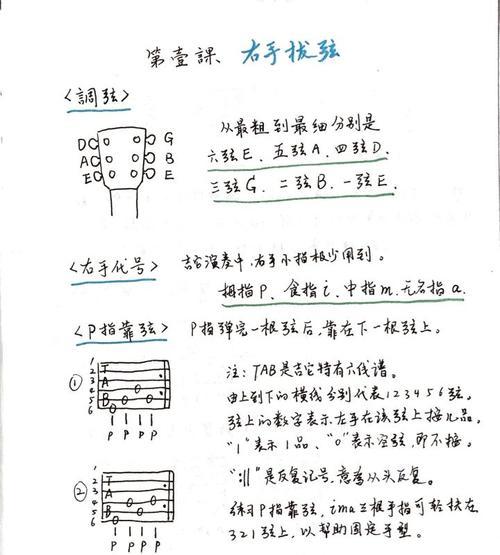 第壹課、右手拔弦
<調弦>
D G
A B
E E
从最粗到最细分别是
六弦E、五弦A、四弦D、
三弦G、二弦B、一弦E.
<右手代号> 吉它演奏中,右手小指极少用到。
拇指P、食指i、中指m、无名指a.
<P指靠弦> P指弹完一根弦后,靠在下一根弦上。
①
1
2
3
4
5
6
T
A
B
0 0 0 0
P P P P
注:TAB是吉它特有六线谱。
由上到下的横线分别代表123456弦。
弦上的数字表示左手在该弦上按几品。
"1"表示1品、"0"表示空弦,即不按。
":||"是反复记号,意为从头反复。
②
1
2
3
4
5
6
T
A
B
0 0 0 0
P P P P
练习P指靠弦,ima三根手指可轻扶在
321弦上,以帮助固定手型。